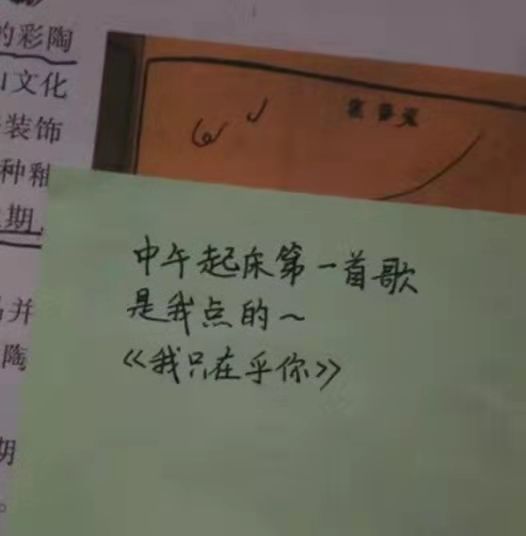 的彩陶
文化
装饰
种釉
期
并
陶
期
中午起床第一首歌
是我点的～
《我只在乎你》